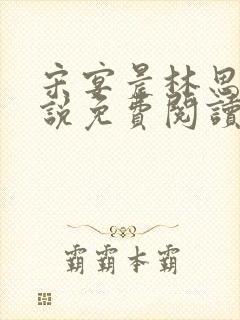 宋宴景林思
說免費閱讀
霸霸本霸